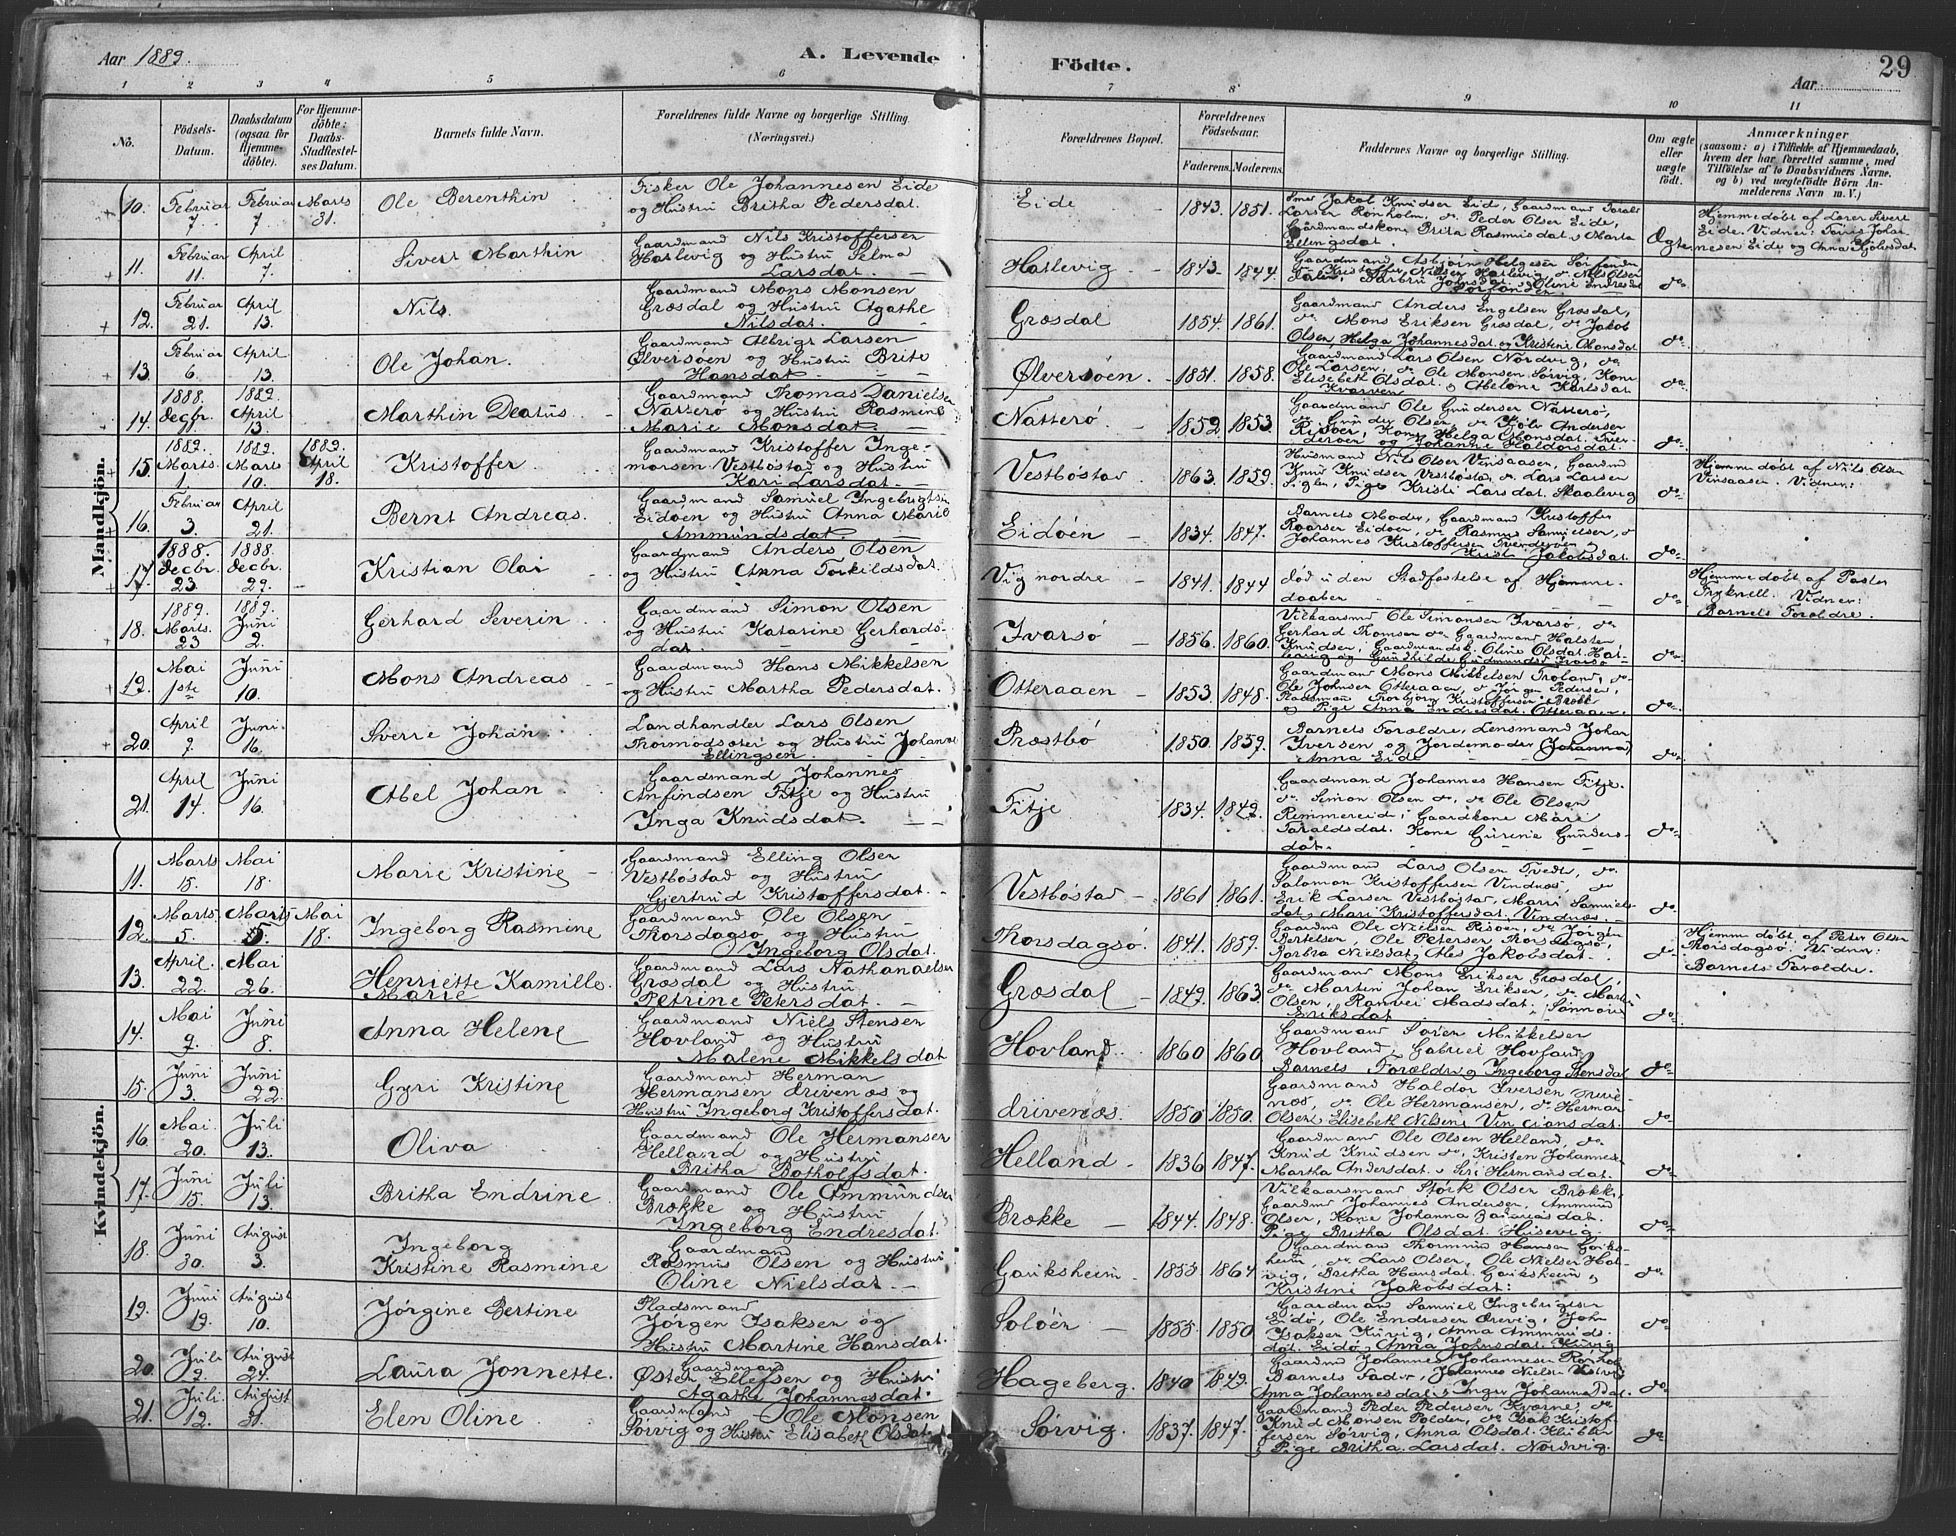 Aar 1889.
A. Levende Födte.
Aar
29
1 2 3 4 5 6 7 8 9 10 11
No.
Födsels-Datum.
Daabsdatum (ogsaa for Hjemme-döbte).
For Hjemme-döbte: Daabs-Stadfæstel-ses Datum.
Barnets fulde Navn.
Forældrenes fulde Navne og borgerlige Stilling. (Næringsvei.)
Forældrenes Bopæl.
Forældrenes Födselsaar.
Faderens. Moderens.
Faddernes Navne og borgerlige Stilling.
Om ægte eller uægte födt.
Anmærkninger
(saasom: a) i Tilfælde af Hjemmedaab, hvem der har forrettet samme, med Tilföielse af to Daabsvidners Navne, og b) ved uægtefödte Börn An-melderens Navn m. V.)
Mandkjön.
10. Februar 7. Februar 7 Marts 31. Ole Berenthin
Fisker Ole Johannesen Eide
og Hustru Britha Pedersdat.
Eide 1843. 1851.
Larsen Rönholm, do Peder Olsen Eide,
Gaardmandskone Brita Rasmusdat. Marta
Ellingsdat.
Ægte
Hjemmedöbt af Lærer Sivert
Eide. Vidner: Tönis Johan-
nesen Eide og Anna
11. Februar 11. April 7. Sivert Marthin
Gaardmand Nils Kristoffersen
Hatlevig og Hustru Selma
Larsdat.
Hatlevig 1843. 1844.
Gaardmand Asbjørn Helgesen
Kristoffer Nilsen Hatlevig, do Nils Olsen
do
12. Februar 21. April 13. Nils.
Gaardmand Mons Monsen
Græsdal og Hustru Agathe
Nilsdat.
Græsdal 1854. 1861.
Gaardmand Anders Engelsen Græsdal,
do Mons Eriksen Græsdal, do Jakob
Olsen, Helga Johannesdat. og Kristine Monsdat.
do
13. Februar 6. April 13. Ole Johan.
Gaardmand Albrigt Larsen
Ølversøen og Hustru Brite
Hansdat.
Ølversöen. 1851. 1858.
Gaardmand Lars Olsen Nordvig, do
Ole Larsen, do Ole Monsen Sørvig, Kone
Elisebeth Olsdat.
do
14. 1888. Decbr. 1889. April 13. Marthin Deatus
Gaardmand Thomas Danielsen
Natterø og Hustru Rasmine
Marie Monsdat.
Natterö 1852 1853
Gaardmand Ole Gundersen Natterø,
do Gunder Olsen, do
Risöer, Kone Helga Monsdat.
do
15. 1889. Marts 1. 1889. Marts 10. 1889. April 18. Kristoffer
Gaardmand Kristoffer Inge-
marsen Vestböstad og Hustru
Kari Larsdat.
Vestböstad 1863. 1859.
Husmand Nils Olsen Vinsaasen, Gaardmd
Knud Knudsen Vestböstad, do Lars Larsen
Siglen, Pige Kristi Larsdat. Skaalevig
do
Hjemmedöbt af Nils Olsen
Vinsaasen. Vidner:
16. Februar 3. April 21. Bernt Andreas.
Gaardmand Samuel Ingebrigtsen
Eidöen og Hustru Anna Marie
Ammundsdat.
Eidöen 1834. 1847.
Barnets Moder, Gaardmand Kristoffer
Roarsen Eidöen, do Rasmus Samuelsen, do
Johannes Kristoffersen
Kristi Jakobsdat.
do
17. 1888. Decbr. 23 1888. Decbr. 27. Kristian Olai
Gaardmand Anders Olsen
og Hustru Anna Torkildsdat.
Vig nordre 1841. 1844
död uden Stadfæstelse af Hjemme-
daaben
do
Hjemmedöbt af Pastor
Vidner:
Barnets Forældre.
18. 1889. Marts. 23 1889. Juni 2. Gerhard Severin
Gaardmand Simon Olsen
og Hustru Katarine Gerhards-
dat.
Ivarsö 1856. 1860.
Vilkaarsmd Ole Simonsen Ivarsö, do
Gerhard Thomsen do Gaardmand Halsten
Knudsen, Gaardmandsk. Oline Olsdat.
do
19. Mai 1ste Juni 10. Mons Andreas
Gaardmand Hans Mikkelsen
og Hustru Martha Pedersdat.
Otteraaen 1853 1848.
Gaardmand Mons Mikkelsen Troland, do
Ole Johnsen Otteraaen, do Jörgen Pedersen,
Pladsmand Torbjörn Kristoffersen Brokk
og Pige Anna Endresdat. Otteraaen.
do
20. April 9. Juni 16. Sverre Johan
Landhandler Lars Olsen
Thormodsæter og Hustru Johanne
Ellingsen.
Præstbö 1850. 1859.
Barnets Forældre, Lensmand Johan
Iversen og Jordemoder Johanna
Anna Eide
do
21. April 14 Juni 16. Abel Johan
Gaardmand Johannes
Anfindsen Fitje og Hustru
Inga Knudsdat.
Fitje 1834. 1849.
Gaardmand Johannes Hansen Fitje,
do Simon Olsen do, do Ole Olsen
Remmereid, Gaardkone Mari
Taraldsdat. Kone Gurine Gunders-
dat.
do
Kvindekjön.
11. Marts 15. Mai 18. Marie Kristine
Gaardmand Elling Olsen
Vestböstad og Hustru
Gjertrud Kristoffersdat.
Vestböstad 1861 1861.
Gaardmand Lars Olsen Tvedt, do
Salomon Kristoffersen Vindnæs, do
Erik Larsen Vestböstad, Marri Samuels-
dat. Mari Kristoffersdat. Vindnæs.
do
12. Marts 5. Marts 5. Mai 18. Ingeborg Rasmine
Gaardmand Ole Olsen
Thorsdagsö og Hustru
Ingeborg Olsdat.
Thorsdagsö. 1841. 1859.
Gaardmd Ole Nielsen Risöen, do Jörgen
Bertelsen, Ole Petersen Thorsdagsö,
Barbra Nielsdat. Ales Jakobsdat.
do
Hjemmedöbt af Peter Olsen
Thorsdagsö. Vidner:
Barnets Forældre.
13. April. 22 Mai 26. Henriette Kamille Marie
Gaardmand Lars Nathanaelsen
Græsdal og Hustru
Petrine Petersdat.
Græsdal 1849. 1863
Gaardmand Mons Eriksen Græsdal,
do Martin Johan Eriksen, do Martin
Olsen, Ranvei Madsdat.
Eriksdat
do
14. Mai 9. Juni 8. Anna Helene
Gaardmand Niels Stensen
Hovland og Hustru
Malene Mikkelsdat
Hovland. 1860 1860.
Gaardmand Sören Mikkelsen
Hovland, Gabriel Hovland,
Barnets Forældre, Ingeborg Stensdat
do
15. Juni 3. Juni 22. Gyri Kristine
Gaardmand Herman
Hermansen Drivenæs og
Hustru Ingeborg Kristoffersdat.
Drivenæs. 1850 1850.
Gaardmand Haldor Iversen Drive-
næs, do Ole Hermansen, do Herman
Olsen, Elisebeth Nilsine Vinciansdat.
do
16. Mai 20. Juli 13. Oliva
Gaardmand Ole Hermansen
Helland og Hustru
Britha Botholfsdat.
Helland 1836 1847.
Gaardmand Ole Olsen Helland, do
Knud Knudsen do Kristen Johannes-
Martha Andersdat. Siri Hermansdat.
do
17. Juni 15. Juli 13. Britha Endrine
Gaardmand Ole Ammundsen
Brække og Hustru
Ingeborg Endresdat.
Brække 1844. 1848.
Vilkaarsmand Störk Olsen Brække,
Gaardmd Johannes Andersen, Ammund
Olsen, Kone Johanna Zakariasdat.
Pige Britha Olsdat. Husevig.
do
18. Juni 30. August 3. Ingeborg Kristine Rasmine
Gaardmand
Rasmus Olsen og Hustru
Oline Nielsdat
Gauksheim 1855 1864
Gaardmand Thormod Hansen Gauks-
heim, do Lars Olsen, Ole Nielsen Hat-
vig, Britha Hansdat. Gauksheim,
Kristine Jakobsdat:
do
19. Juni 19. August 10. Jörgine Bertine
Pladsmand
Jörgen Isaksen og
Hustru Martine Hansdat.
Solöen 1855. 1850
Gaardmand Samuel Ingebrigtsen
Eidö, Ole Endresen Ørevig, John
Isaksen Kuvig, Anna Ammunds-
dat. Eidö, Anna Johnsdat. Kuvig
do
20. Juli 9. August 24. Laura Jonnette.
Gaardmand
Østen Ellefsen og Hustru
Agathe Johannesdat.
Hageberg. 1840 1849.
Gaardmd Johannes Johannesen
Barnets Fader, Johannes Nielsen
Anna Johannesdat., Inger Johannesdat.
do
21. Juli 12. August 31. Elen Oline
Gaardmand Ole Monsen
Sörvig og Hustru Elisabeth Olsdat.
Sörvig. 1837. 1847.
Gaardmand Peder Pedersen Kværnes, do
Knud Monsen Polden, do Isak Kristof-
fersen Sörvig, Anna Olsdat.
Pige Britha Larsdat. Nordvig.
do